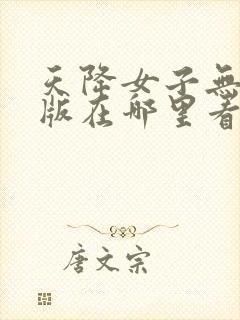 天降女子無
版在哪里看
唐文宗